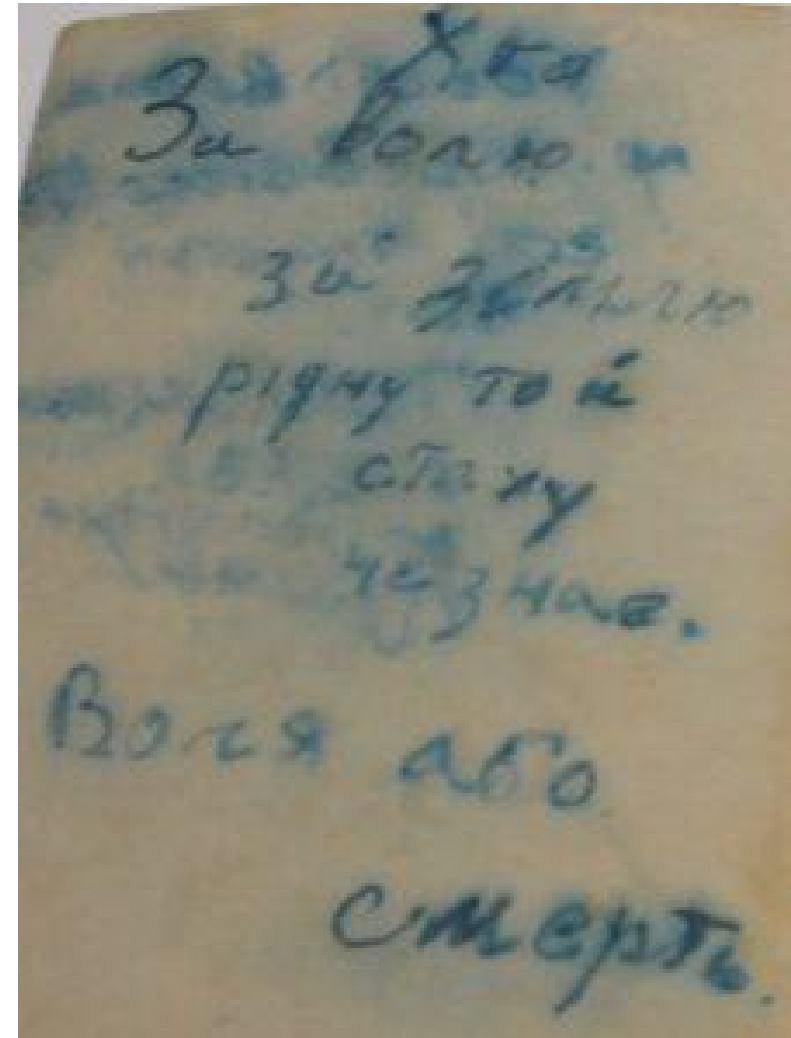 Хто
За волю.
за землю
рідну той
страху
не знає.
Воля або
смерть.